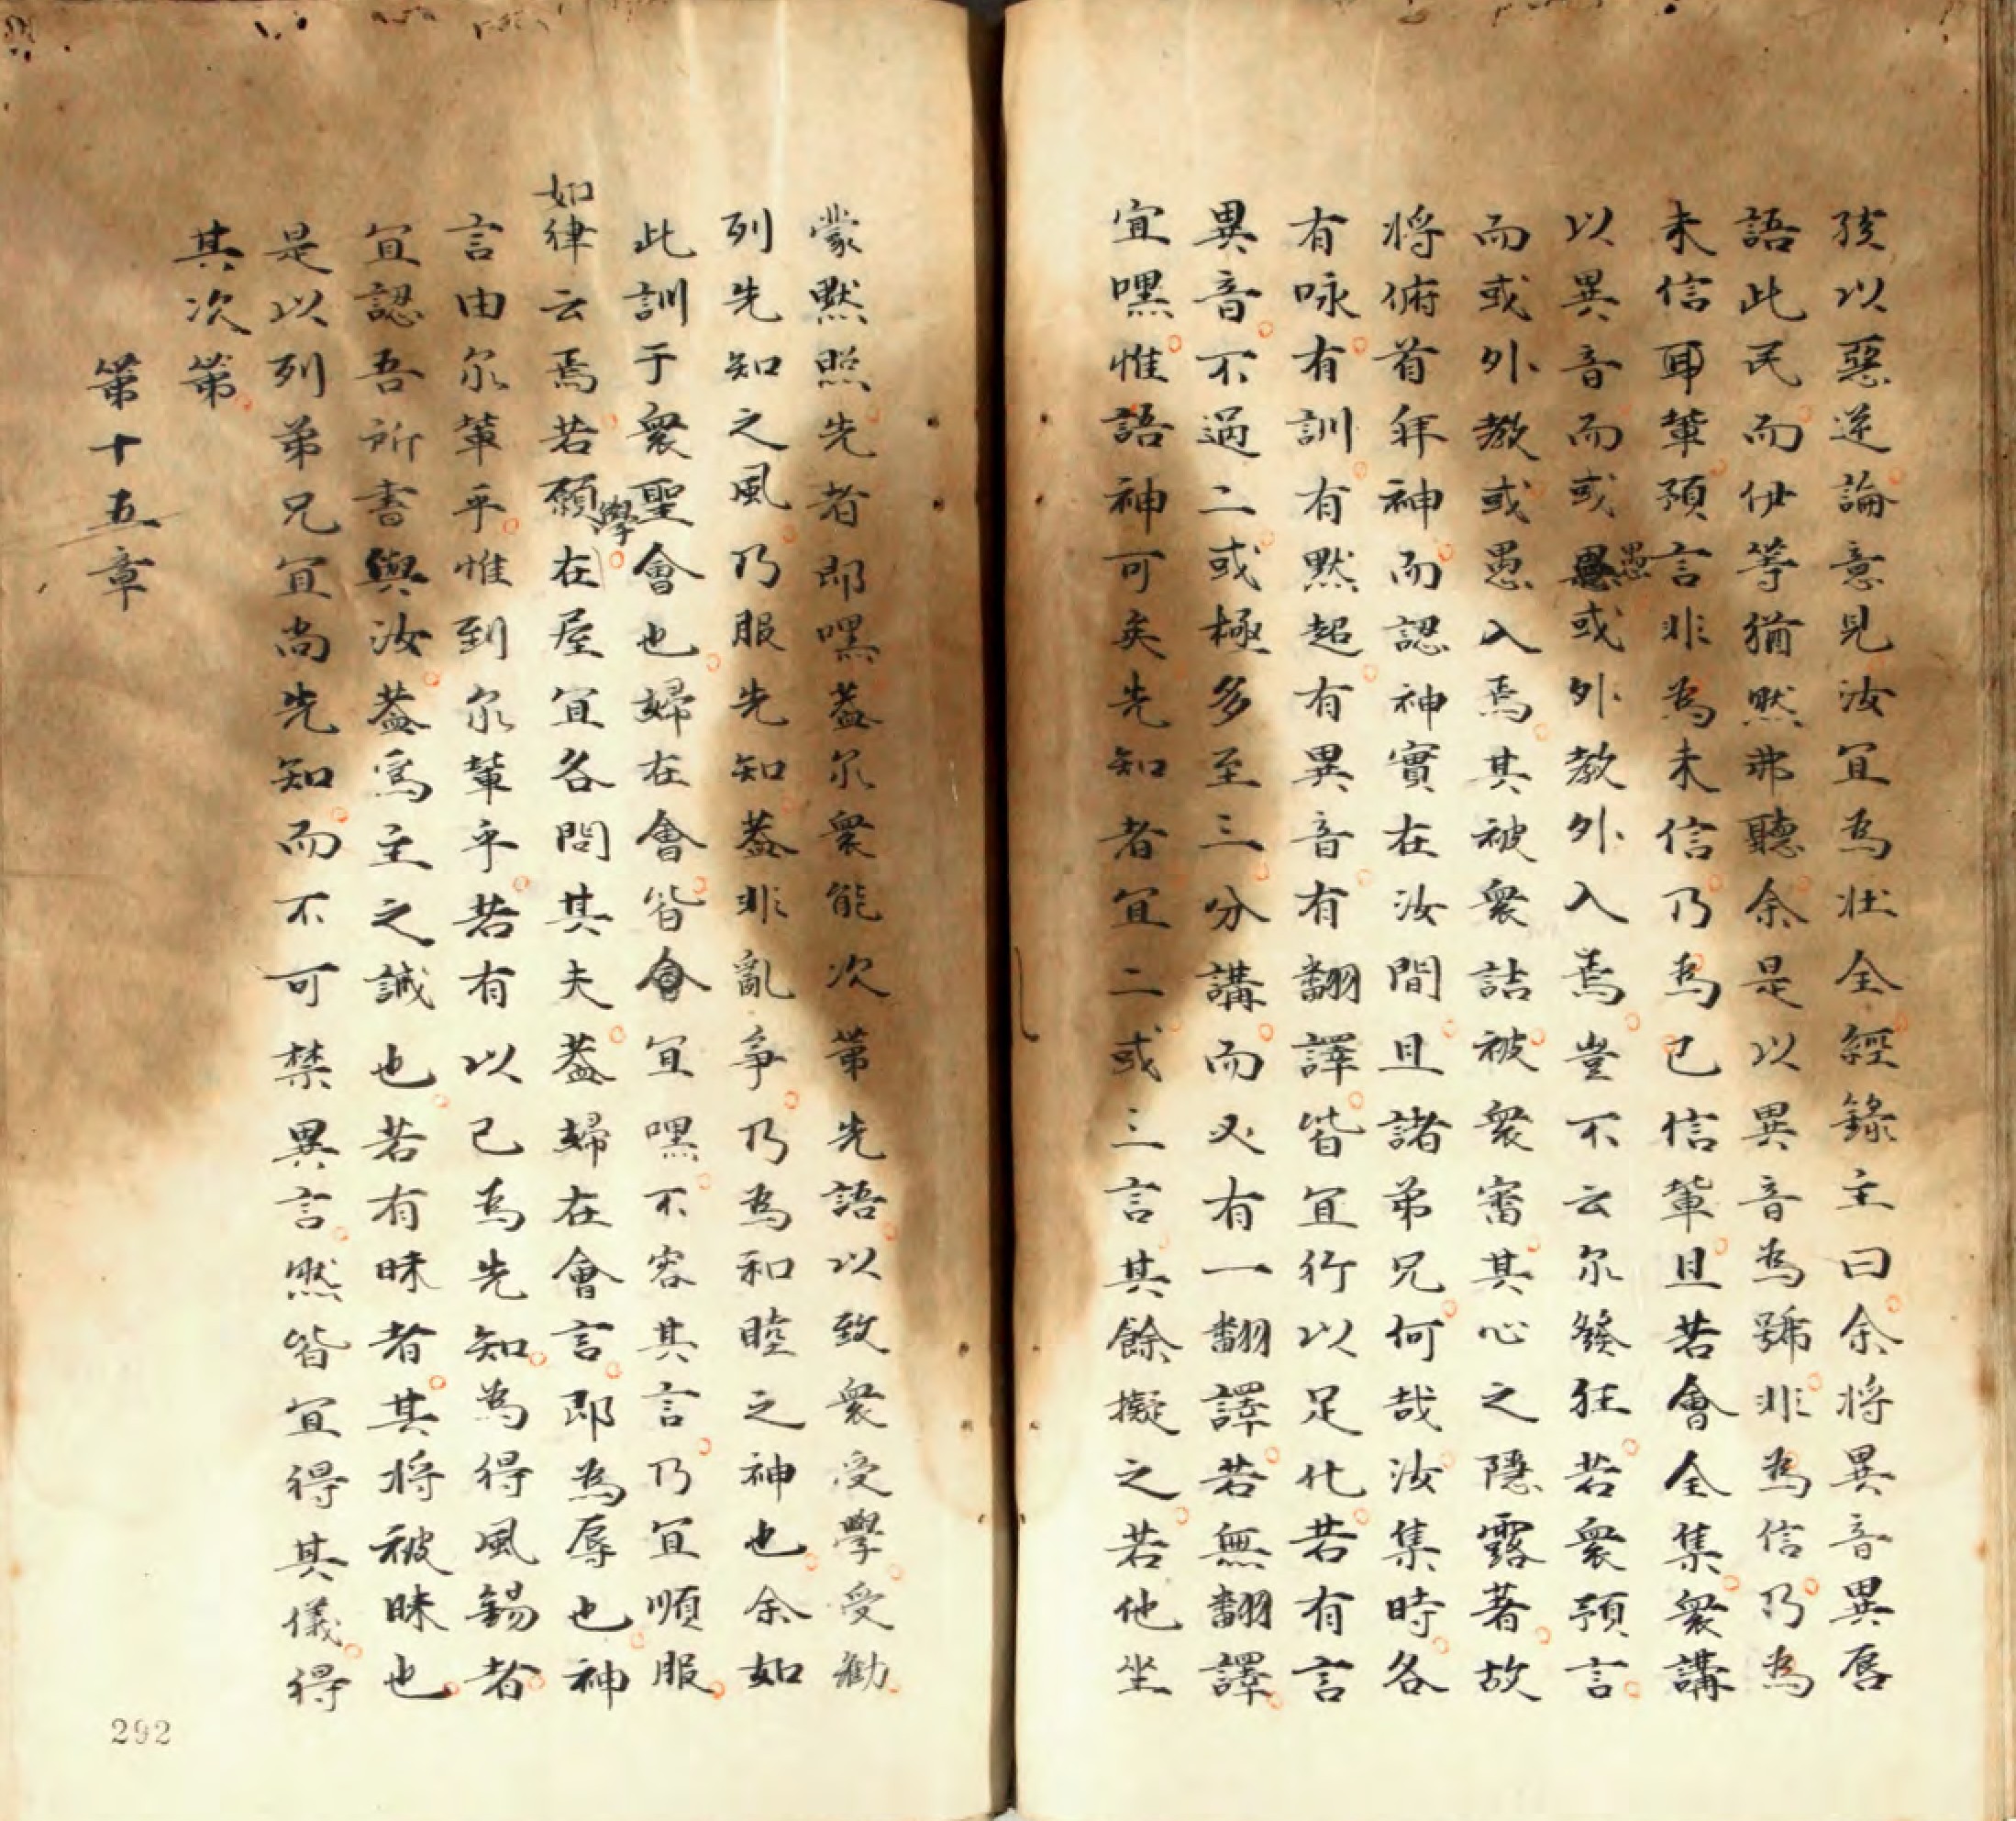 孩以惡遂論意見汝宜為壯全經錄主曰余将異音異唇
語此民而伊等猶然弗聽余是以異音為號非為信乃為
未信耳輩預言非為未信乃為已信輩且若會全集衆講
以異音而或愚或外教外入焉豈不云尔發狂若衆預言
而或外教或愚入焉其被衆詰被衆審其心之隱露著故
将俯首拜神而認神實在汝間且諸弟兄何哉汝集時各
有咏有訓有默超有異音有翻譯皆宜行以足化若有言
異音不過二或極多至三分講而必有一翻譯若無翻譯
宜嘿惟語神可矣先知者宜二或三言其餘擬之若他坐
蒙默照先者即嘿蓋尔衆能次第先語以致衆受學受勸
列先知之風乃服先知蓋非亂爭乃為和睦之神也余如
此訓于衆聖會也婦在會皆會宜嘿不容其言乃宜順服
如律云焉若願學在屋宜各問其夫蓋婦在會言即為辱也神
言由尔輩乎惟到尔輩乎若有以已為先知為得風錫者
宜認吾所書與汝蓋為主之誡也若有昧者其将被昧也
是以列弟兄宜尚先知而不可禁異言然皆宜得其儀得
其次第
第十五章
292